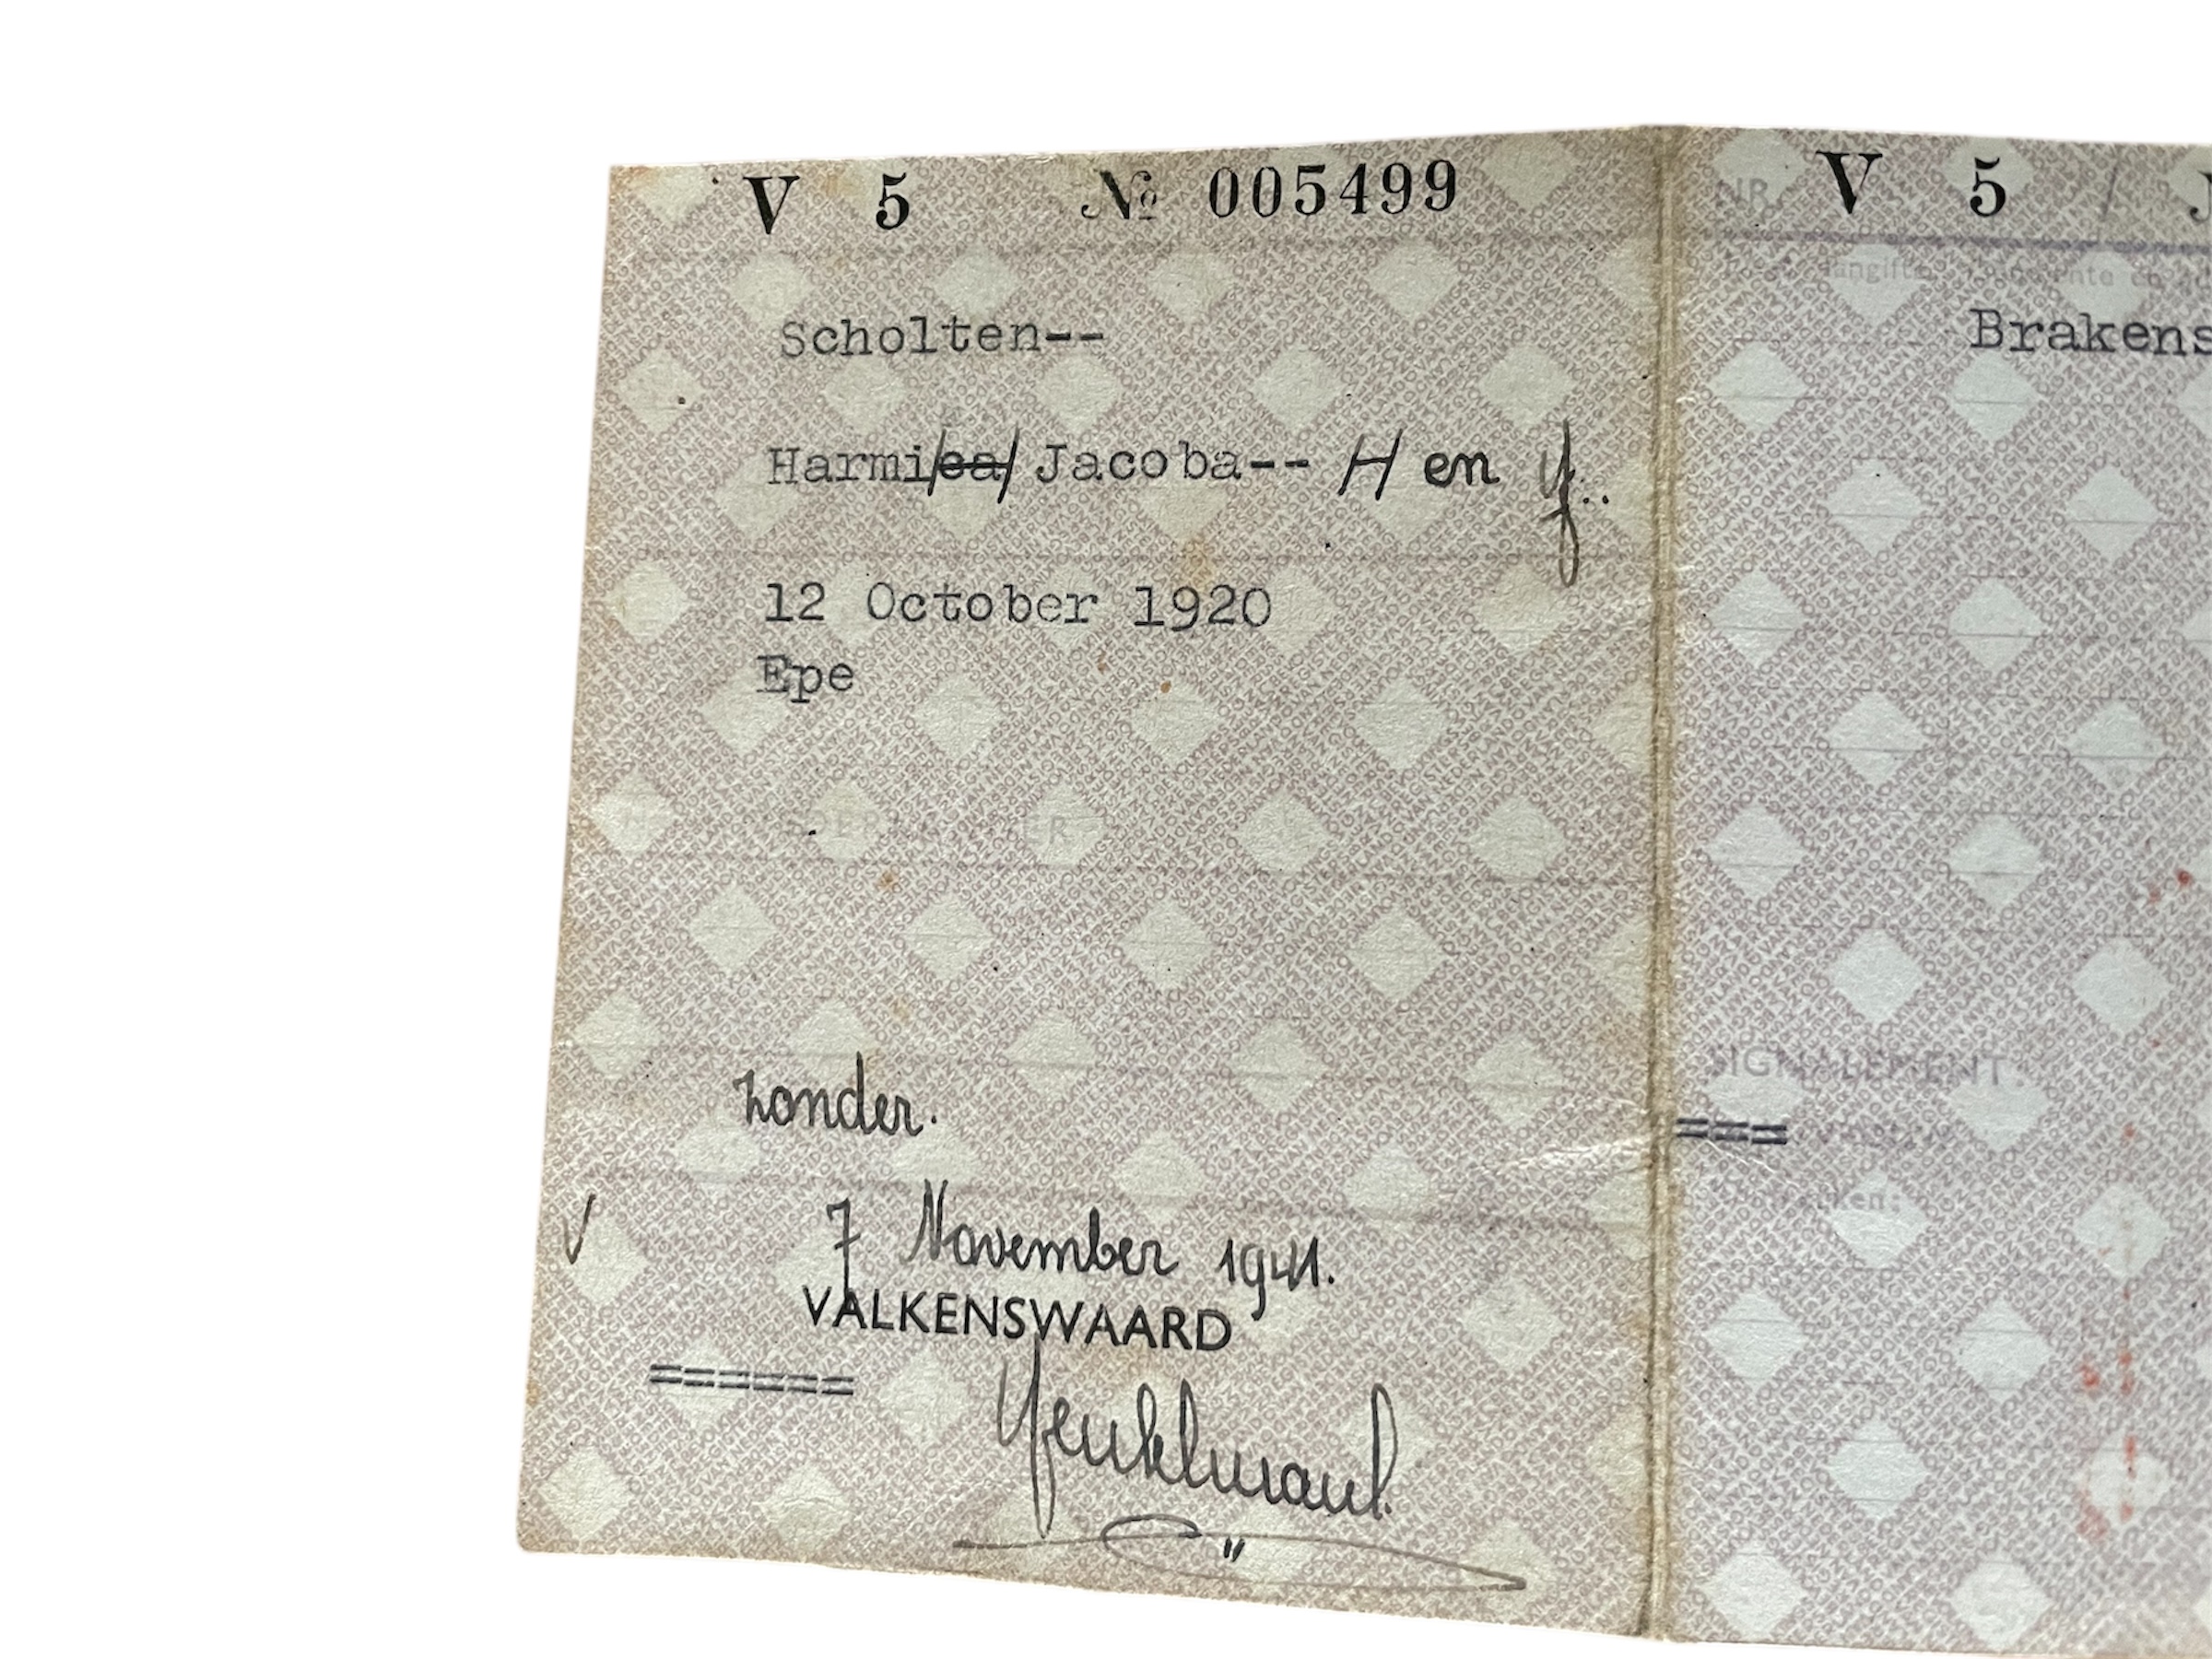 V 5 № 005499
Scholten--
Harmi/ea/ Jacoba-- H en J..
12 October 1920
Epe
zonder.
V 7 November 1941.
VALKENSWAARD
======
NR V 5
Brakens
SIGNALEMENT.
===